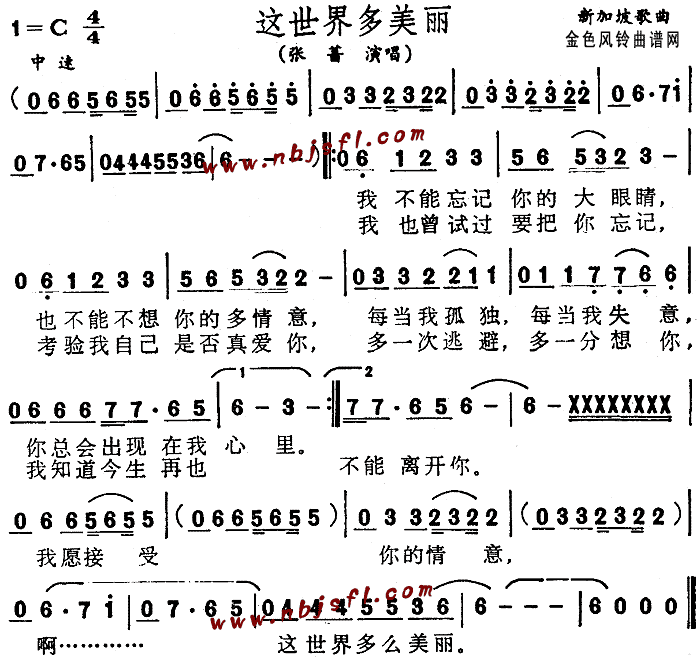 1=C 4/4 这世界多美丽 新加坡歌曲
中速 (张蔷 演唱) 金色风铃曲谱网
( 0 6 6 5 6 5 5 | 0 6 6 5 6 5 5 | 0 3 3 2 3 2 2 | 0 3 3 2 3 2 2 | 0 6·7 i
0 7·6 5 | 0 4 4 4 5 5 3 6 | 6 - - - ) :0 6 1 2 3 3 | 5 6 5 3 2 3 - |
www.nbjsfl.com
我 不能忘记 你的 大 眼睛,
我 也曾试过 要把 你 忘记,
0 6 1 2 3 3 | 5 6 5 3 2 2 - | 0 3 3 2 2 2 1 1 | 0 1 1 7 7 6 6 |
也不能不想 你的多情意, 每当我孤独, 每当我失 意,
考验我自己 是否真爱你, 多一次逃避, 多一分想 你,
0 6 6 6 7 7·6 5 | 1 6 - 3 - : 2 7 7·6 5 6 5 6 - | 6 - XXXXXXXX |
你总会出现 在我 心 里。
我知道今生 再也 不能 离开你。
0 6 6 5 6 5 5 | ( 0 6 6 5 6 5 5 ) | 0 3 3 2 3 2 2 | ( 0 3 3 2 3 2 2 ) |
我愿接 受 你的情 意,
0 6·7 i | 0 7·6 5 | 0 4 4 4 5 5 3 6 | 6 - - - | 6 0 0 0
www.nbjsfl.com
啊………… 这世界多么美丽。